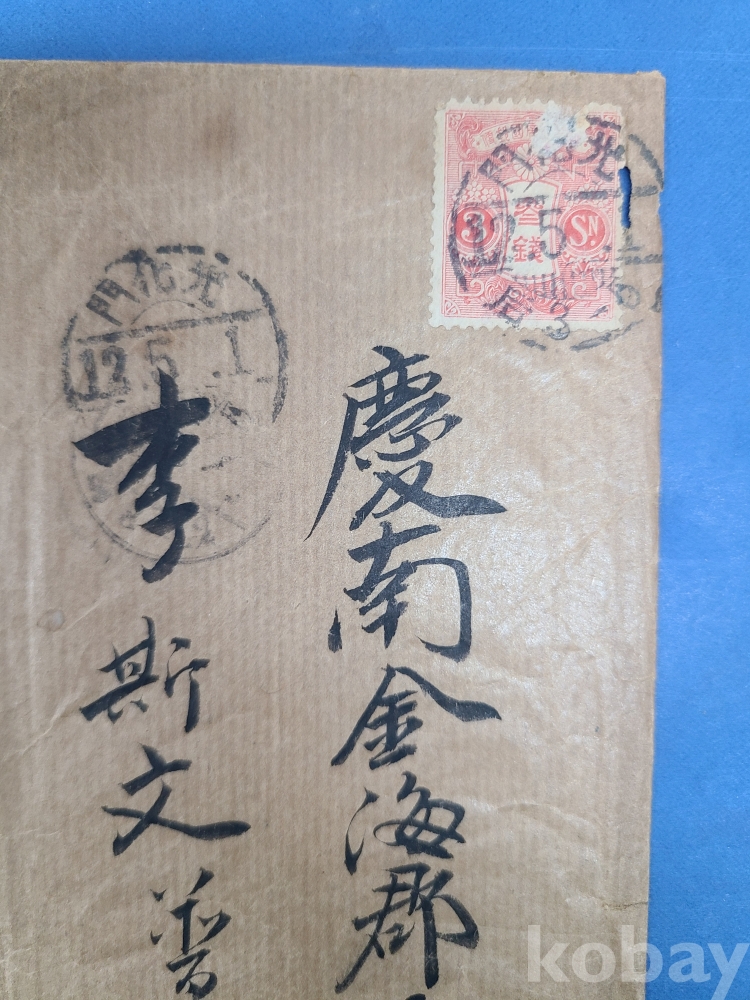 光化門
12.5
3
參錢
Sn.
光化門
12.5.1
慶南金海郡
李斯文普
kobay